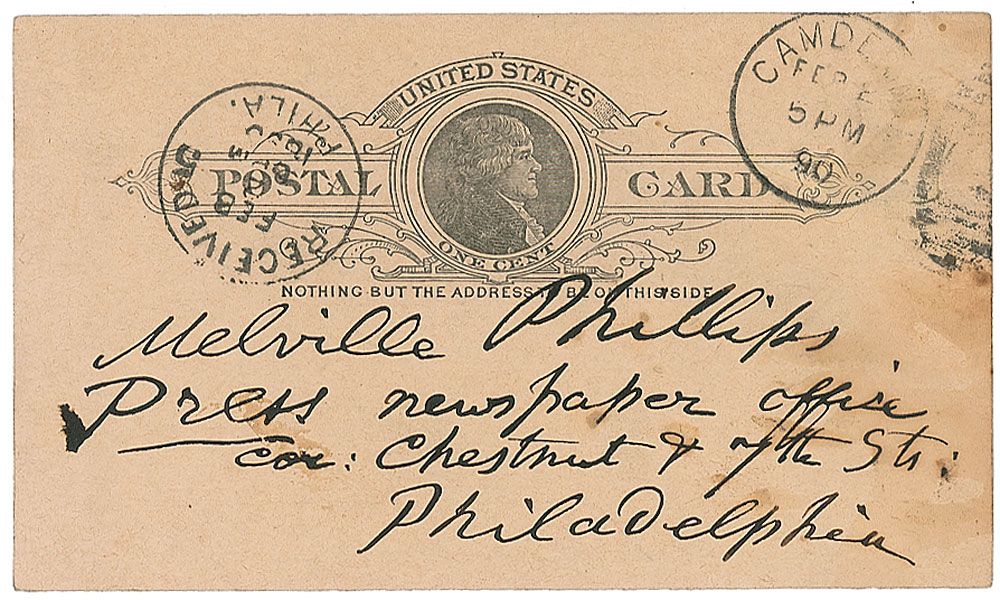 UNITED STATES
POSTAL CARD
ONE CENT
NOTHING BUT THE ADDRESS TO BE ON THIS SIDE
CAMDE
FEB
5 PM
90
RECEIVED
FEB
5
PHILA.
Melville Phillips
Press newspaper office
cor: Chestnut & 7th Sts:
Philadelphia